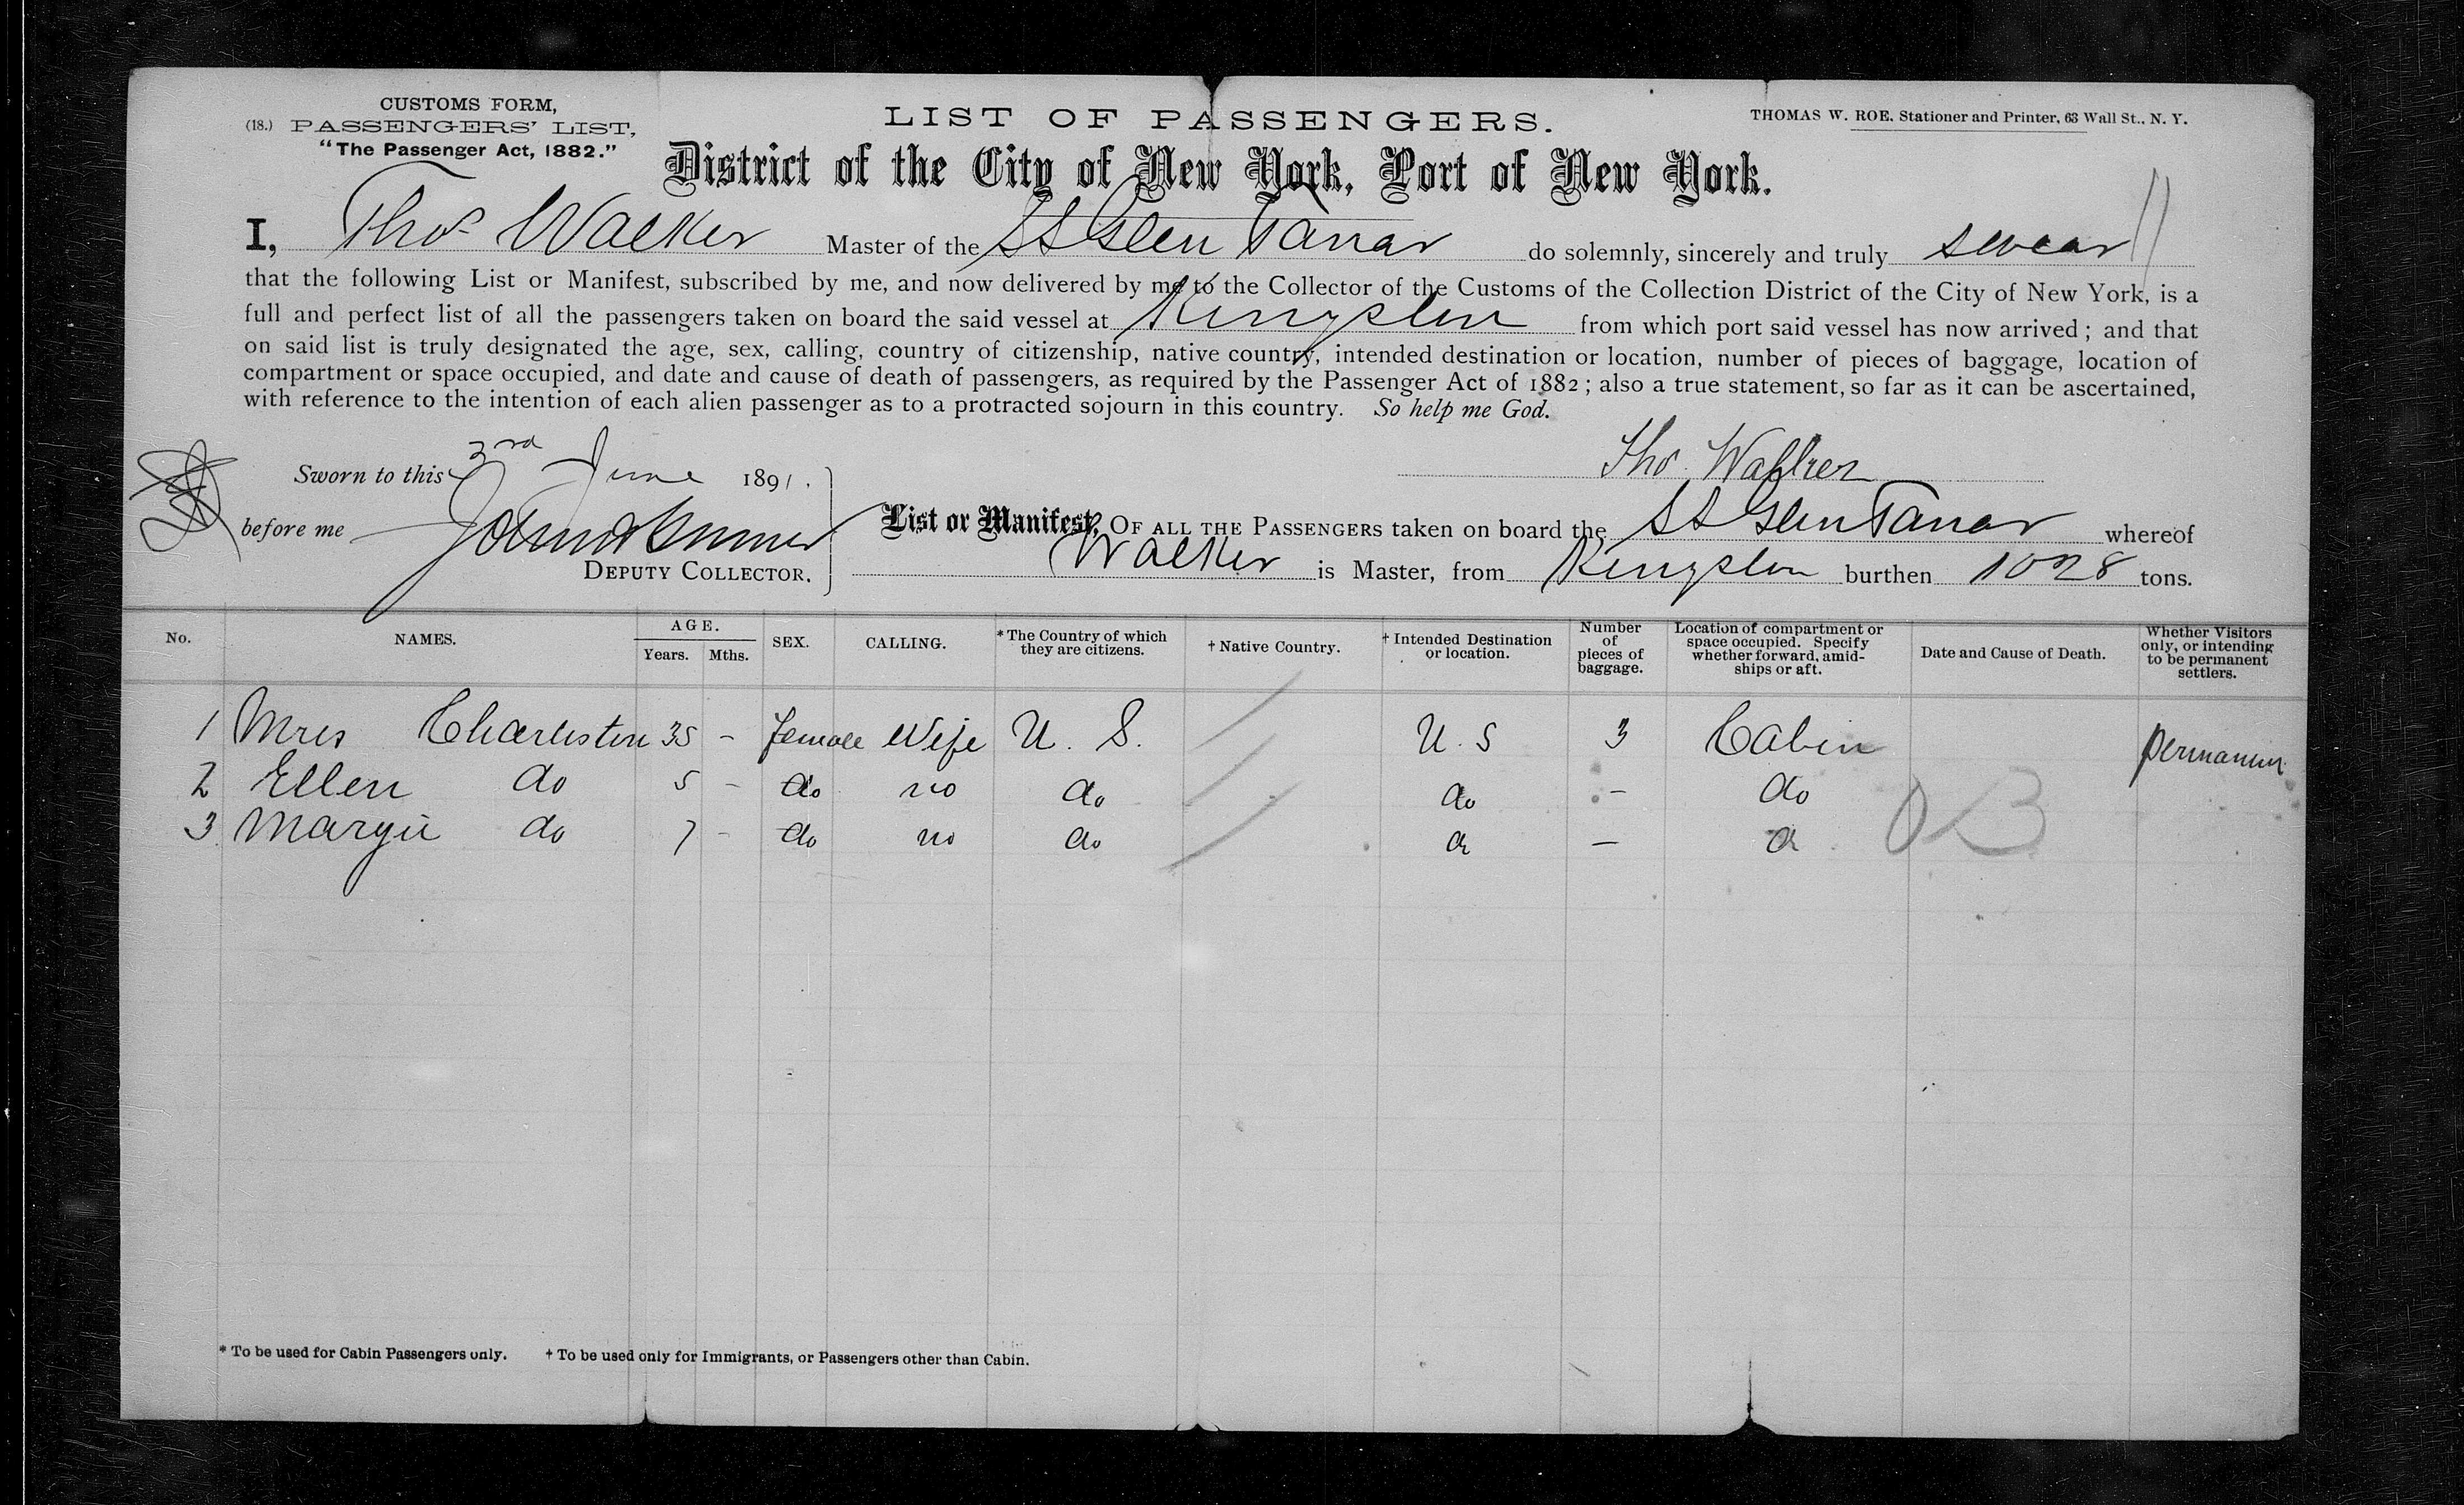 CUSTOMS FORM,
(18.) PASSENGERS' LIST,
"The Passenger Act, 1882."
LIST OF PASSENGERS.
THOMAS W. ROE, Stationer and Printer, 63 Wall St., N. Y.
District of the City of New York, Port of New York.
I, Thos Walker Master of the SS Glen Tanar do solemnly, sincerely and truly swear
that the following List or Manifest, subscribed by me, and now delivered by me to the Collector of the Customs of the Collection District of the City of New York, is a
full and perfect list of all the passengers taken on board the said vessel at Kingston from which port said vessel has now arrived; and that
on said list is truly designated the age, sex, calling, country of citizenship, native country, intended destination or location, number of pieces of baggage, location of
compartment or space occupied, and date and cause of death of passengers, as required by the Passenger Act of 1882; also a true statement, so far as it can be ascertained,
with reference to the intention of each alien passenger as to a protracted sojourn in this country. So help me God.
Sworn to this 3rd June 1891.
Tho. Walker
before me
DEPUTY COLLECTOR.
List or Manifest, OF ALL THE PASSENGERS taken on board the SS Glen Tanar whereof
Walker is Master, from Kingston burthen 1028 tons.
No. NAMES. AGE. Years. Mths. SEX. CALLING. * The Country of which they are citizens. † Native Country. † Intended Destination or location. Number of pieces of baggage. Location of compartment or space occupied. Specify whether forward, amid-ships or aft. Date and Cause of Death. Whether Visitors only, or intending to be permanent settlers.
1 Mrs Charleston 35 - female Wife U. S. U. S 3 Cabin permanent
2 Ellen do 5 - do no do do - do
3 Margie do 7 - do no do do - do
* To be used for Cabin Passengers only. † To be used only for Immigrants, or Passengers other than Cabin.